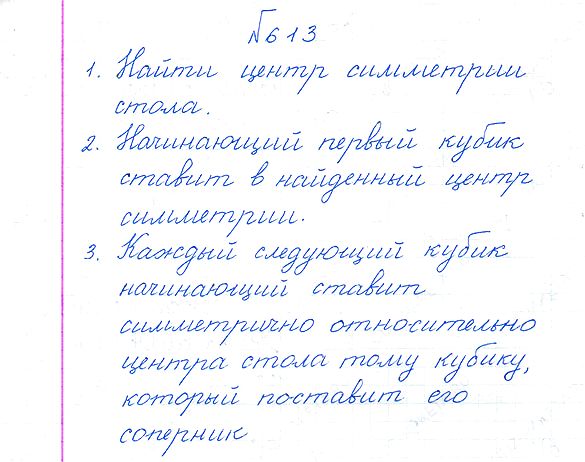 №613
1. Найти центр симметрии
стола.
2. Начинающий первый кубик
ставит в найденный центр
симметрии.
3. Каждый следующий кубик
начинающий ставит
симметрично относительно
центра стола тому кубику,
который поставит его
соперник